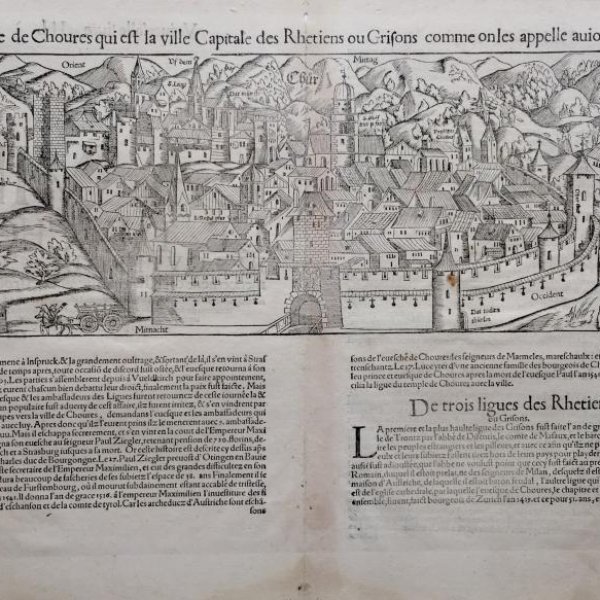 e de Choures qui est la ville Capitale des Rhetiens ou Grisons comme on les appelle auio
Orient
Vf dem
Mittag
S. Lucj
Chur
Occident
Das todten
Mitnacht
mene à Inspruck, & la grandement oultragé, & sortant de là, il s'en vint à Stras
de temps apres, toute occasiõ de discord fust ostée, & l'euesque retourna à son
Les parties s'assemblerent depuis à Vueldkirch pour faire appointement,
eurent chascun bien debattu leur droit, finalement la paix fut faicte. Mais
esque & les ambassadeurs des Ligues furent retournez de ceste iournée la &
un populaire fust aduerty de cest affaire, ilz furent irritez, & vindrent en ar
upes vers la ville de Choures, demandans l'euesque & les ambassadeurs qui
auec luy. Apres donc qu'ilz l'eurent prins ilz le menerent auec
Mais il eschappa secretement, et s'en vint à refuge à l'Empereur Maxi
na son euesché au seigneur Paul Ziegler, retenant pension de 710. florins, de
ch et a Strasbourg iusques à la mort. Or ceste histoire est descrite cy dessus aps
rchables duc de Bourgongne. Le 17. Paul Ziegler preuost d'Otingen et Baure
it secretaire de l'Empereur Maximilien, et eut des grandes difficultez en son
ndura beaucoup de fascheries de ses subietz l'espace de 32. ans Finalement il se
eau de Furstembourg, où il mourut subdainement estant accablé de tristesse,
1541. Il donna l'an de grace 1516. à l'empereur Maximilien l'inuestiture des fi
d'eschanson et de la comte de tyrol. Car les archeducz d'Austriche sont eschã-
sons
sons de l'euesché de Choures des seigneurs de Marmeles, mareschaulx: et
trenschantz. Le
leu prince et euesque de Choures apres la mort de l'euesque Paul l'an 154
cilia la ligue du temple de Choures auec la ville.
De trois ligues des Rhetien
ou Grisons.
La premiere et la plus haulte ligue des Grisons fust faite l'an de gra
le de Trontz par l'abbé de Disentis, le comte de Masaux, et le barc
re les peuples estrangers et les pensions, et pour
faict que leurs subietz n'allassent hors de leurs pays pour
aussi fust adioustée que l'abbé ne voulust point que cecy fust faict en au
Romain, duquel il estoit prelat, ne des seigneurs de Milan, desquelz il
maison d'Austriche, de laquelle il estoit baron feudal, l'autre ligue qui
est de l'eglise cathedrale, par laquelle l'euesque de Choures, le chapitre et
ensemble, furent faictz bourgeois de Zurich l'an 1419. et ce pour 51. ans, et